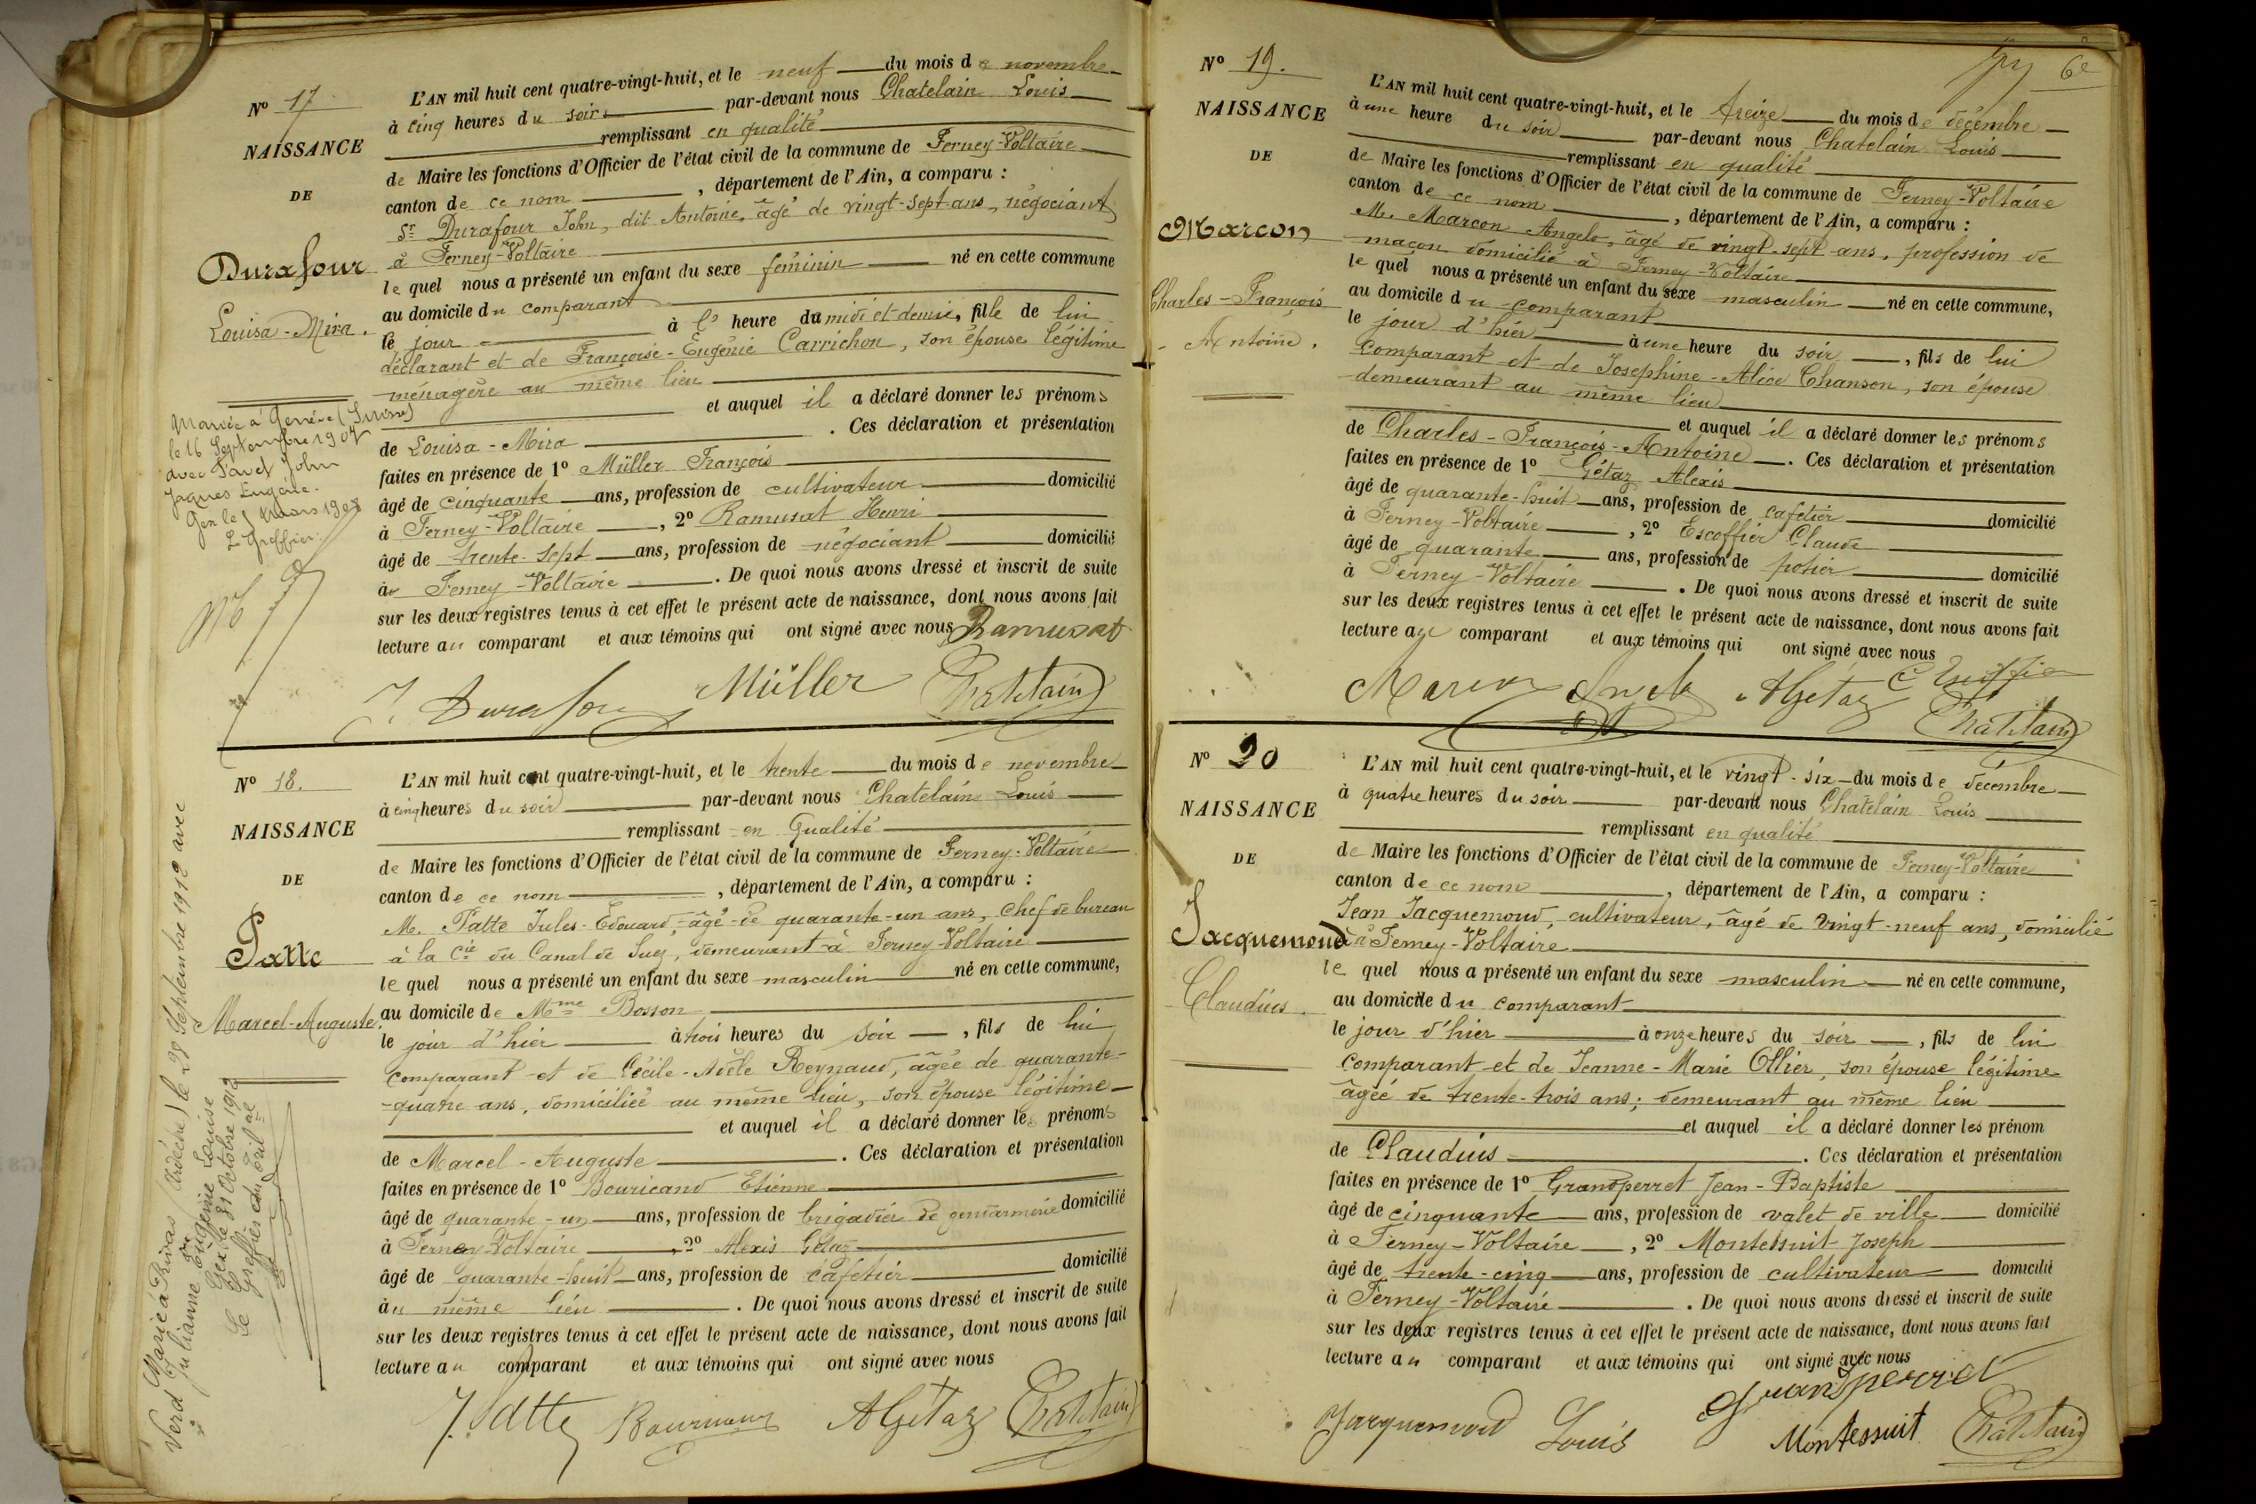 Nº 17
NAISSANCE
DE
Durafour
Louisa-Mira.
Mariée à Genève (Suisse)
le 16 Septembre 1907
avec Favet John
Jaques Eugène.
Gex le mars 1908
Le Greffier.
L'AN mil huit cent quatre-vingt-huit, et le neuf du mois de novembre
à cinq heures du soir par-devant nous Chatelain Louis
remplissant en qualité
de Maire les fonctions d'Officier de l'état civil de la commune de Ferney-Voltaire
canton de ce nom, département de l'Ain, a comparu :
Sr Durafour John, dit Antoine, âgé de vingt-sept ans, négociant
à Ferney-Voltaire
lequel nous a présenté un enfant du sexe féminin né en cette commune
au domicile du comparant
le jour à l'heure du midi et demie, fille de lui
déclarant et de Françoise-Eugénie Carrichon, son épouse légitime
ménagère au même lieu
et auquel il a déclaré donner les prénoms
de Louisa-Mira. Ces déclaration et présentation
faites en présence de 1º Müller François
âgé de cinquante ans, profession de cultivateur domicilié
à Ferney-Voltaire, 2º Ramusat Henri
âgé de trente-sept ans, profession de négociant domicilié
à Ferney-Voltaire. De quoi nous avons dressé et inscrit de suite
sur les deux registres tenus à cet effet le présent acte de naissance, dont nous avons fait
lecture au comparant et aux témoins qui ont signé avec nous Ramusat
J. Durafour Müller Chatelain
Nº 18.
NAISSANCE
DE
Patte
Marcel-Auguste.
Marié à Privas (Ardèche) le 28 Septembre 1912 avec
Verd Julianne Eugénie Louise
Gex, le 31 Octobre 1912
Le Greffier du Tribal
L'AN mil huit cent quatre-vingt-huit, et le trente du mois de novembre
à cinq heures du soir par-devant nous Chatelain Louis
remplissant en Qualité
de Maire les fonctions d'Officier de l'état civil de la commune de Ferney-Voltaire
canton de ce nom, département de l'Ain, a comparu :
M. Patte Jules-Edouard, âgé de quarante-un ans, chef de bureau
à la Cie du Canal de Suez, demeurant à Ferney-Voltaire
lequel nous a présenté un enfant du sexe masculin né en cette commune,
au domicile de Mme Bosson
le jour d'hier à trois heures du soir, fils de lui
comparant et de Cécile-Adèle Reynaud, âgée de quarante-
-quatre ans, domiciliée au même lieu, son épouse légitime
et auquel il a déclaré donner les prénoms
de Marcel-Auguste. Ces déclaration et présentation
faites en présence de 1º Bouricand Etienne
âgé de quarante-un ans, profession de brigadier de gendarmerie domicilié
à Ferney-Voltaire, 2º Alexis Gétaz
âgé de quarante-huit ans, profession de cafetier domicilié
au même lieu. De quoi nous avons dressé et inscrit de suite
sur les deux registres tenus à cet effet le présent acte de naissance, dont nous avons fait
lecture au comparant et aux témoins qui ont signé avec nous
J. Patte Bouricand A Gétaz Chatelain
6e
Nº 19.
NAISSANCE
DE
Marcon
Charles-François
-Antoine.
L'AN mil huit cent quatre-vingt-huit, et le treize du mois de décembre
à une heure du soir par-devant nous Chatelain Louis
remplissant en qualité
de Maire les fonctions d'Officier de l'état civil de la commune de Ferney-Voltaire
canton de ce nom, département de l'Ain, a comparu :
M. Marcon Angelo, âgé de vingt-sept ans, profession de
maçon domicilié à Ferney-Voltaire
lequel nous a présenté un enfant du sexe masculin né en cette commune,
au domicile du comparant
le jour d'hier à une heure du soir, fils de lui
comparant et de Josephine-Alice Chanson, son épouse
demeurant au même lieu
et auquel il a déclaré donner les prénoms
de Charles-François-Antoine. Ces déclaration et présentation
faites en présence de 1º Gétaz Alexis
âgé de quarante-huit ans, profession de cafetier domicilié
à Ferney-Voltaire, 2º Escoffier Claude
âgé de quarante ans, profession de potier domicilié
à Ferney-Voltaire. De quoi nous avons dressé et inscrit de suite
sur les deux registres tenus à cet effet le présent acte de naissance, dont nous avons fait
lecture au comparant et aux témoins qui ont signé avec nous
Marcon Angelo A Gétaz C Escoffier
Chatelain
Nº 20
NAISSANCE
DE
Jacquemoud
Claudius.
L'AN mil huit cent quatre-vingt-huit, et le vingt-six du mois de décembre
à quatre heures du soir par-devant nous Chatelain Louis
remplissant en qualité
de Maire les fonctions d'Officier de l'état civil de la commune de Ferney-Voltaire
canton de ce nom, département de l'Ain, a comparu :
Jean Jacquemoud, cultivateur, âgé de vingt-neuf ans, domicilié
à Ferney-Voltaire
lequel nous a présenté un enfant du sexe masculin né en cette commune,
au domicile du comparant
le jour d'hier à onze heures du soir, fils de lui
comparant et de Jeanne-Marie Ollier, son épouse légitime
âgée de trente-trois ans; demeurant au même lieu
et auquel il a déclaré donner les prénom
de Claudius. Ces déclaration et présentation
faites en présence de 1º Grandperret Jean-Baptiste
âgé de cinquante ans, profession de valet de ville domicilié
à Ferney-Voltaire, 2º Montessuit Joseph
âgé de trente-cinq ans, profession de cultivateur domicilié
à Ferney-Voltaire. De quoi nous avons dressé et inscrit de suite
sur les deux registres tenus à cet effet le présent acte de naissance, dont nous avons fait
lecture au comparant et aux témoins qui ont signé avec nous
Grandperret
Jacquemoud Louis Montessuit Chatelain